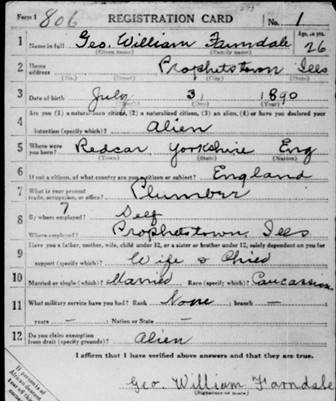 Form 1 806 REGISTRATION CARD No. 1
1 Name in full Geo. William Farndale Age, in yrs. 26
(Given name) (Family name)
2 Home address Prophetstown Ills
(No.) (Street) (City) (State)
3 Date of birth July 3 1890
(Month) (Day) (Year)
4 Are you (1) a natural-born citizen, (2) a naturalized citizen, (3) an alien, (4) or have you declared your
intention (specify which)? Alien
5 Where were you born? Redcar Yorkshire Eng
(Town) (State) (Nation)
6 If not a citizen, of what country are you a citizen or subject? England
7 What is your present trade, occupation, or office? Plumber
7
8 By whom employed? Self
Where employed? Prophetstown, Ills
9 Have you a father, mother, wife, child under 12, or a sister or brother under 12, solely dependent on you for
support (specify which)? Wife & Child
10 Married or single (which)? Married Race (specify which)? Caucasian
11 What military service have you had? Rank None ; branch —
years — ; Nation or State —
12 Do you claim exemption from draft (specify grounds)? Alien
I affirm that I have verified above answers and that they are true.
Geo. William Farndale
(Signature or mark)
If person is of African descent, tear off this corner